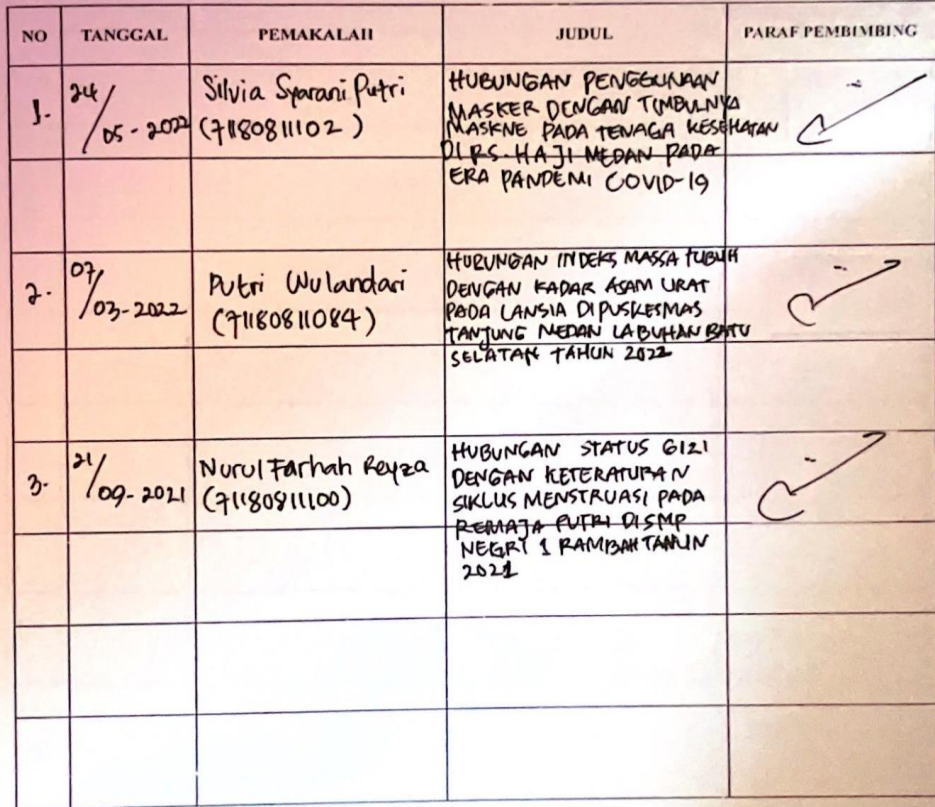 NO TANGGAL PEMAKALAH JUDUL PARAF PEMBIMBING
1.
24/05-2022
Silvia Syarani Putri
(71180811102)
HUBUNGAN PENGGUNAAN
MASKER DENGAN TIMBULNYA
MASKNE PADA TENAGA KESEHATAN
DI RS. HAJI MEDAN PADA
ERA PANDEMI COVID-19
2.
07/03-2022
Putri Wulandari
(71180811084)
HUBUNGAN INDEKS MASSA TUBUH
DENGAN KADAR ASAM URAT
PADA LANSIA DI PUSKESMAS
TANJUNG MEDAN LABUHAN BATU
SELATAN TAHUN 2022
3.
21/09-2021
Nurul Farhah Reyza
(71180811100)
HUBUNGAN STATUS GIZI
DENGAN KETERATURAN
SIKLUS MENSTRUASI PADA
REMAJA PUTRI DI SMP
NEGRI 1 RAMBAH TAHUN
2021